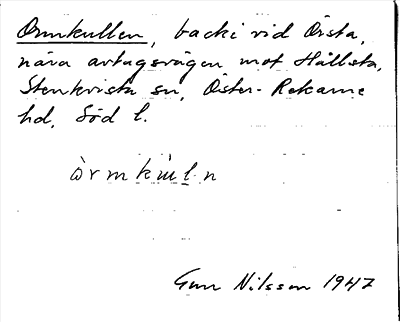 Ormkullen, backe vid Örsta,
nära avtagsvägen mot Hållsta,
Stenkvista sn, Öster-Rekarne
hd, Söd l.
òrmkùl̲n
Gun Nilsson 1947